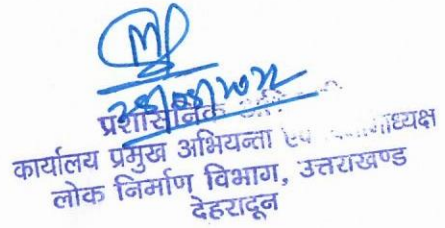 प्रशासनिक
कार्यालय प्रमुख अभियन्ता एवं विभागाध्यक्ष
लोक निर्माण विभाग, उत्तराखण्ड
देहरादून